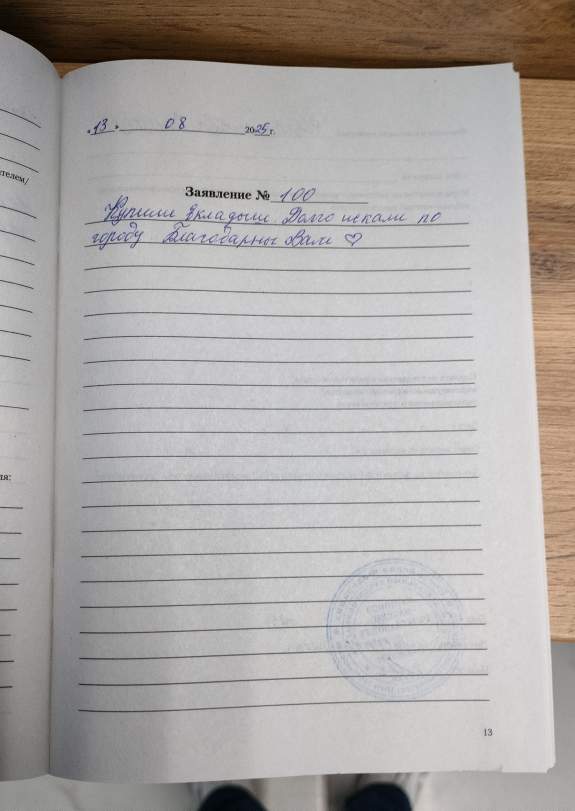 «13» 08 2025 г.
Заявление № 100
Купили вкладыши Долго искали по
городу Благодарны Вам ♡
13
телем/
ля: